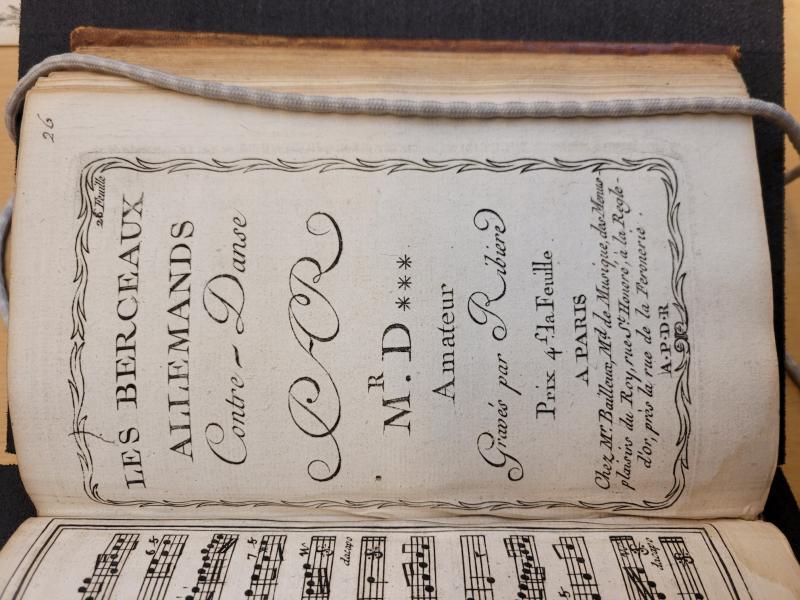 26
26 Feuille
LES BERCEAUX
ALLEMANDS
Contre-Danse
PAR
M.R D***
Amateur
Gravés par Ribiere
Prix 4.ſ la Feuille
A PARIS
Chez Mr. Bailleux, Md. de Musique, des Menus
plaisirs du Roy, rue St. Honoré, à la Regle-
d'or, près la rue de la Feronerie.
A·P·D·R
6 8
7 8
W
dacapo
W
dacapo